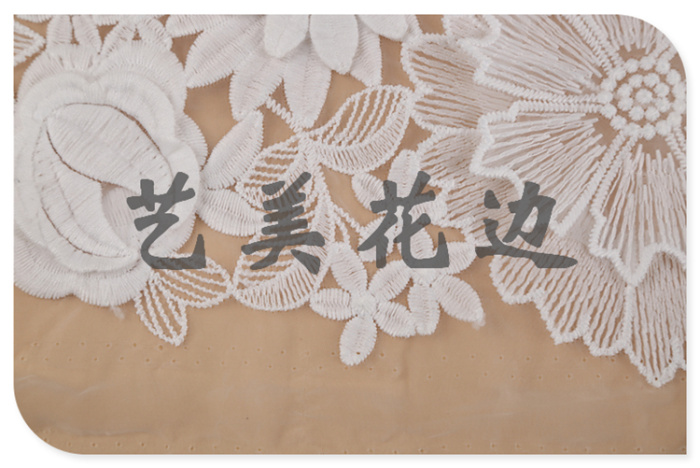 艺美花边